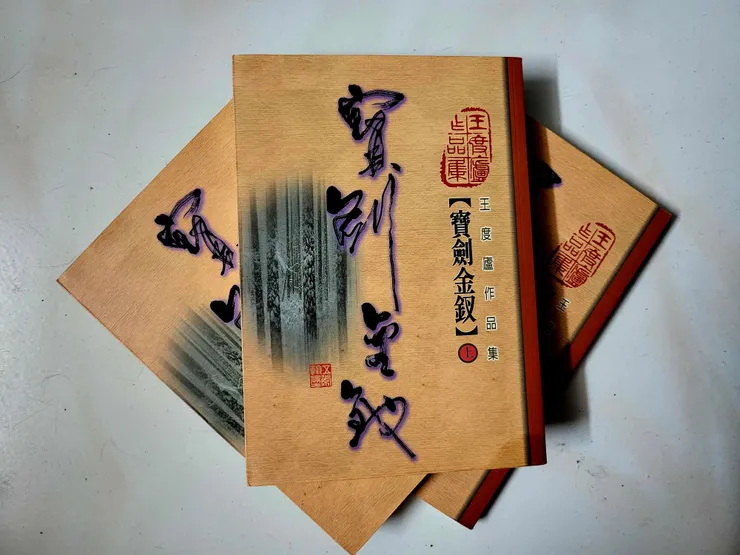 寶劍金釵
王度廬
作品集
王度廬作品集
【寶劍金釵】
上
寶
王度廬
作品集
王